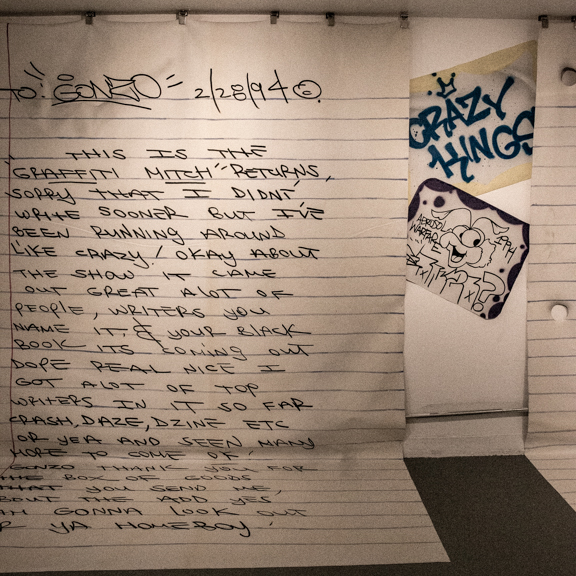 TO: GONZO 2/28/94 ©.
THIS IS THE
GRAFFITI MITCH" RETURNS,
SORRY THAT I DIDN'T
WRITE SOONER BUT I'VE
BEEN RUNNING AROUND
LIKE CRAZY! OKAY ABOUT
THE SHOW IT CAME
OUT GREAT ALOT OF
PEOPLE, WRITERS YOU
NAME IT. & YOUR BLACK
BOOK ITS COMING OUT
DOPE REAL NICE I
GOT ALOT OF TOP
WRITERS IN IT SO FAR
CRASH, DAZE, DZINE ETC
OR YEA AND SEEN MANY
MORE TO COME OF.
GONZO THANK YOU FOR
THE BOX OF GOODS
THAT YOU SEND ME,
BOUT THE ADD YES,
GONNA LOOK OUT
YA HOMEBOY!
CRAZY
KINGS
AEROSOL
WARFARE